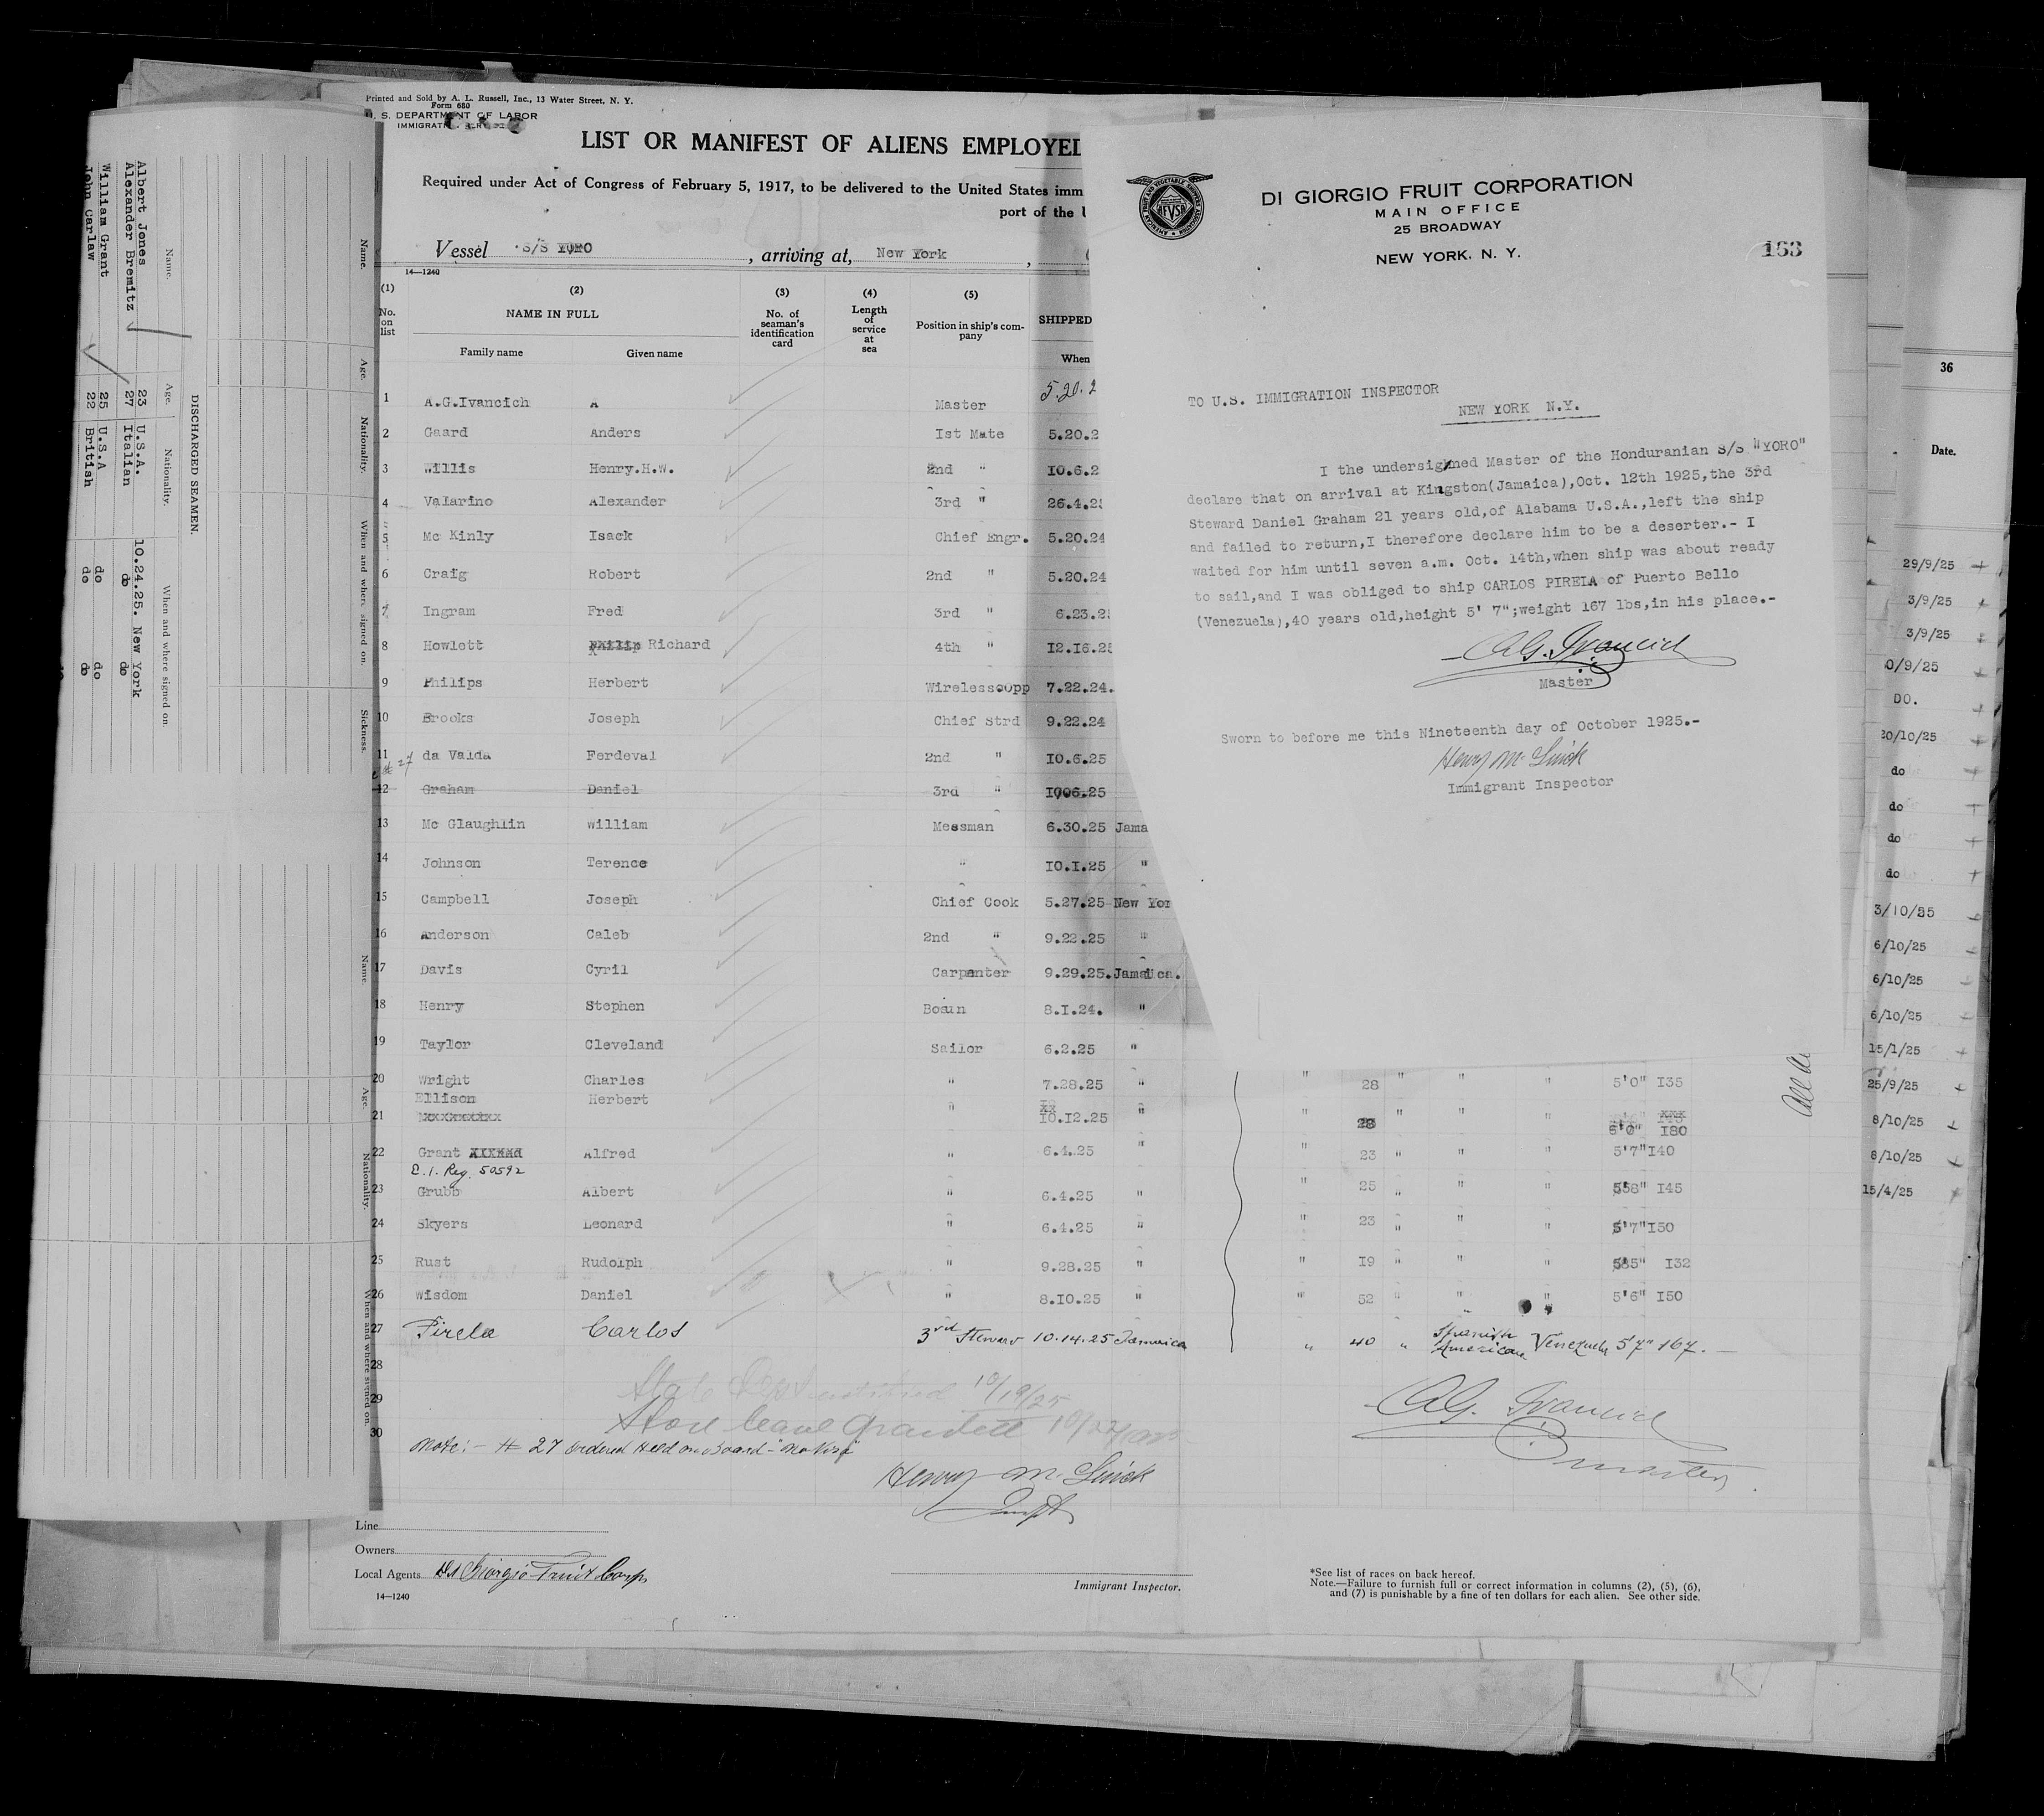 Printed and Sold by A. L. Russell, Inc., 13 Water Street, N. Y.
Form 680
U. S. DEPARTMENT OF LABOR
LIST OR MANIFEST OF ALIENS EMPLOYED
Required under Act of Congress of February 5, 1917, to be delivered to the United States imm
port of the U
Vessel S/S YORO, arriving at, New York,
14—1240
(1) (2) (3) (4) (5)
No. on list NAME IN FULL No. of seaman's identification card Length of service at sea Position in ship's company SHIPPED
Family name Given name When
1 A.G.Ivancich A Master 5.20.2
2 Gaard Anders Ist Mate 5.20.2
3 Willis Henry.H.W. 2nd " I0.6.2
4 Valarino Alexander 3rd " 26.4.25
5 Mc Kinly Isack Chief Engr. 5.20.24
6 Craig Robert 2nd " 5.20.24
7 Ingram Fred 3rd " 6.23.25
8 Howlett Philip Richard 4th " I2.I6.25
9 Philips Herbert Wirelessopp 7.22.24.
10 Brooks Joseph Chief Strd 9.22.24
11 da Valda Ferdeval 2nd " I0.6.25
12 Graham Daniel 3rd " I006.25
13 Mc Glaughlin William Messman 6.30.25 Jama
14 Johnson Terence " I0.I.25 "
15 Campbell Joseph Chief Cook 5.27.25 New Yor
16 Anderson Caleb 2nd " 9.22.25 "
17 Davis Cyril Carpenter 9.29.25. Jamaica.
18 Henry Stephen Bosun 8.I.24. "
19 Taylor Cleveland Sailor 6.2.25 "
20 Wright Charles " 7.28.25 " " 28 " " " 5'0" I35
Ellison Herbert
21 " I0.I2.25 " " 28 " " " 6'0" I80
22 Grant Alfred " 6.4.25 " " 23 " " " 5'7" I40
E.I. Reg. 50592
23 Grubb Albert " 6.4.25 " " 25 " " " 5'8" I45
24 Skyers Leonard " 6.4.25 " " 23 " " " 5'7" I50
25 Rust Rudolph " 9.28.25 " " I9 " " " 5'5" I32
26 Wisdom Daniel " 8.I0.25 " " 52 " " " 5'6" I50
27 Pirela Carlos 3rd Steward 10.14.25 Jamaica " 40 " Spanish American Venezuela 5'7" 167.
28
29
30
10/19/25
Note:- # 27 ordered held on board - "no visa"
Henry McLuick
Inspt
A.G. Ivancich
Master
Line
Owners
Local Agents Di Giorgio Fruit Corp.
14—1240
Immigrant Inspector.
*See list of races on back hereof.
Note.—Failure to furnish full or correct information in columns (2), (5), (6),
and (7) is punishable by a fine of ten dollars for each alien. See other side.
DI GIORGIO FRUIT CORPORATION
MAIN OFFICE
25 BROADWAY
NEW YORK, N. Y.
163
TO U.S. IMMIGRATION INSPECTOR
NEW YORK N.Y.
I the undersigned Master of the Honduranian S/S "YORO"
declare that on arrival at Kingston(Jamaica),Oct. 12th 1925,the 3rd
Steward Daniel Graham 21 years old,of Alabama U.S.A.,left the ship
and failed to return,I therefore declare him to be a deserter.- I
waited for him until seven a.m. Oct. 14th,when ship was about ready
to sail,and I was obliged to ship CARLOS PIRELA of Puerto Bello
(Venezuela),40 years old,height 5' 7";weight 167 lbs,in his place.-
A.G. Ivancich
Master
Sworn to before me this Nineteenth day of October 1925.-
Henry McLuick
Immigrant Inspector
DISCHARGED SEAMEN.
Name. Age. Nationality. When and where signed on.
Albert Jones 23 U.S.A. 10.24.25. New York
Alexander Bremitz 27 Italian do do
William Grant 25 U.S.A do do
John Carlaw 22 British do do
Name. Age. Nationality. When and where signed on. Sickness.
Name. Age. Nationality. When and where signed on.
36
Date.
29/9/25
3/9/25
3/9/25
0/9/25
DO.
20/10/25
do
do
do
do
3/10/25
6/10/25
6/10/25
6/10/25
15/1/25
25/9/25
8/10/25
8/10/25
15/4/25